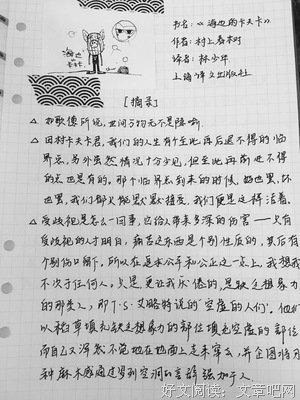 海边的卡夫卡
书名：《海边的卡夫卡》
作者：村上春树
译者：林少华
上海译文出版社
[摘录]
△ 如歌德所说，世间万物无不是隐喻。
△ 田村卡夫卡君，我们的人生有个至此再后退不得的临
界点，另外虽然情况十分少见，但至此再前进不得
的点也是有的。那个临界点到来的时候，好也罢，坏
也罢，我们都只能默默接受，我们便是这样活着。
△ 受歧视是怎么一回事，它给人带来多深的伤害——只有
受歧视的人才明白，痛苦这东西是个别性质的，其后有
个别伤口留下。所以在追求公平和公正这一点上，我想我
不次于任何人。只是，更让我厌倦的，是缺乏想象力
的那类人，即T·S·艾略特说的“空虚的人们”。他们
以稻草填充缺乏想象力的部位填充空虚的部位
而自己又浑然不觉地在地面上走来窜去，并企图将
种麻木感通过罗列空洞的言辞强加于人
好文阅读：文章吧网